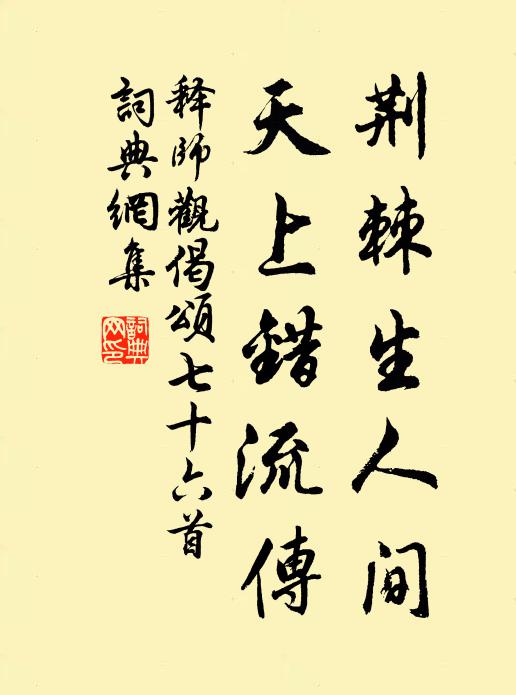 荆棘生人间
天上錯流傳
释师觀偈頌七十六首
詞典網集
詞典網印